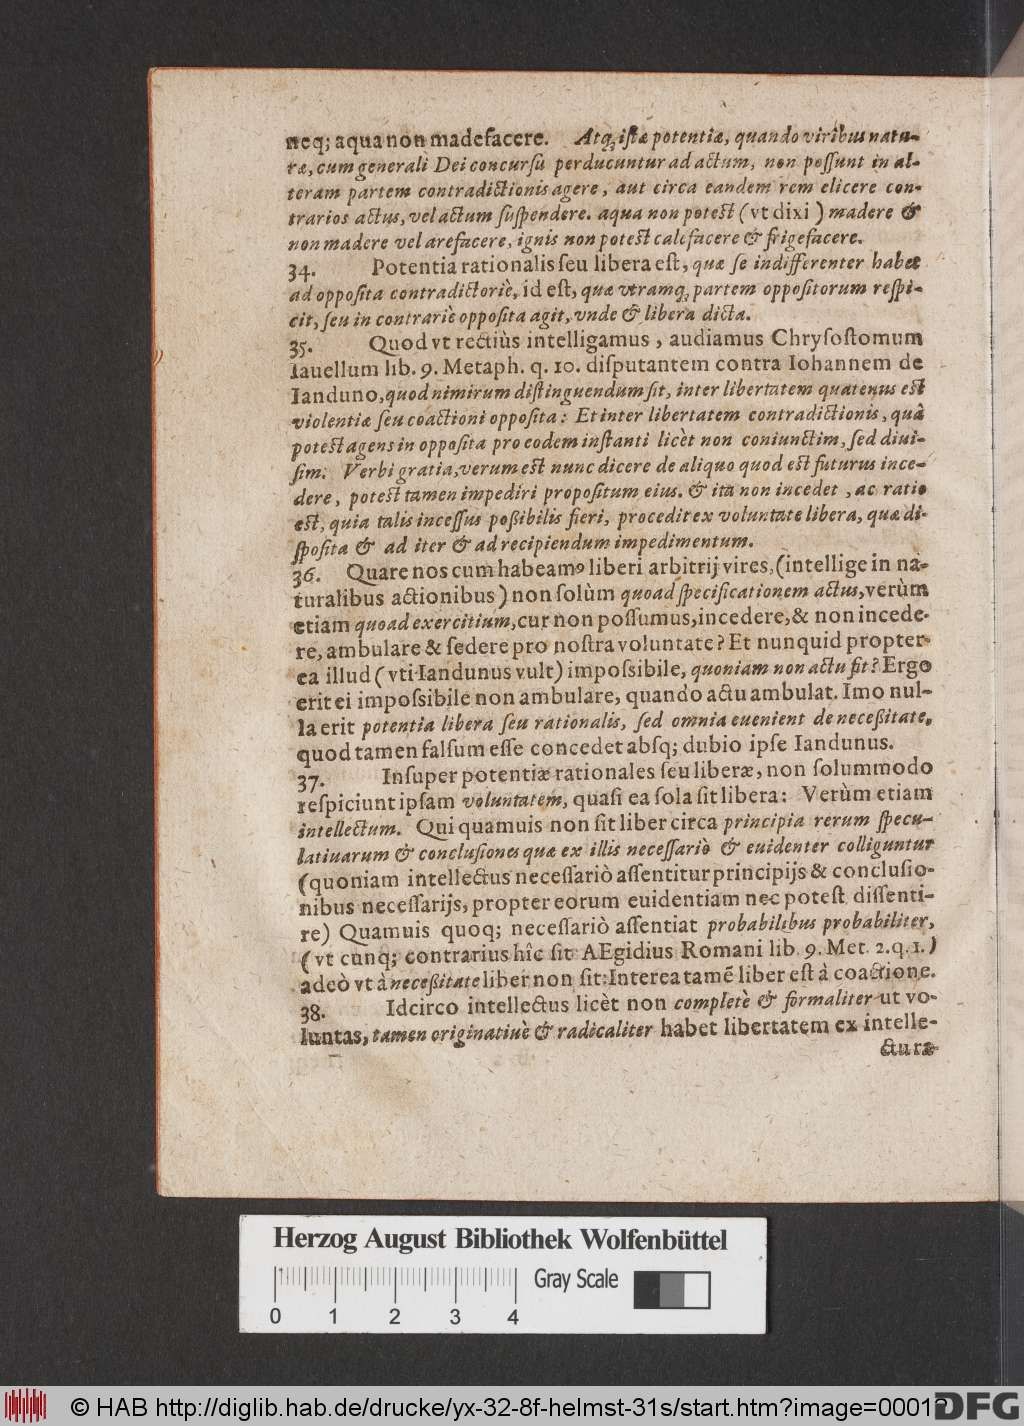 neq; aqua non madefacere. Atq; istæ potentiæ, quando viribus natu-
ræ, cum generali Dei concursu perducuntur ad actum, non possunt in al-
teram partem contradictionis agere, aut circa eandem rem elicere con-
trarios actus, vel actum suspendere. aqua non potest (vt dixi) madere &
non madere vel arefacere, ignis non potest calefacere & frigefacere.
34. Potentia rationalis seu libera est, quæ se indifferenter habet
ad opposita contradictoriè, id est, quæ vtramq; partem oppositorum respi-
cit, seu in contrariè opposita agit, vnde & libera dicta.
35. Quod vt rectiùs intelligamus, audiamus Chrysostomum
Iauellum lib. 9. Metaph. q. 10. disputantem contra Iohannem de
Ianduno, quod nimirum distinguendum sit, inter libertatem quatenus est
violentiæ seu coactioni opposita: Et inter libertatem contradictionis, quâ
potest agens in opposita pro eodem instanti licèt non coniunctim, sed diui-
sim. Verbi gratia, verum est nunc dicere de aliquo quod est futurus ince-
dere, potest tamen impediri propositum eius. & ita non incedet, ac ratio
est, quia talis incessus poßibilis fieri, procedit ex voluntate libera, quæ di-
sposita & ad iter & ad recipiendum impedimentum.
36. Quare nos cum habeamꝰ liberi arbitrij vires, (intellige in na-
turalibus actionibus) non solùm quoad specificationem actus, verùm
etiam quoad exercitium, cur non possumus, incedere, & non incede-
re, ambulare & sedere pro nostra voluntate? Et nunquid propter-
ea illud (vti Iandunus vult) impossibile, quoniam non actu fit? Ergo
erit ei impossibile non ambulare, quando actu ambulat. Imo nul-
la erit potentia libera seu rationalis, sed omnia euenient de neceßitate,
quod tamen falsum esse concedet absq; dubio ipse Iandunus.
37. Insuper potentiæ rationales seu liberæ, non solummodo
respiciunt ipsam voluntatem, quasi ea sola sit libera: Verùm etiam
intellectum. Qui quamuis non sit liber circa principia rerum specu-
latiuarum & conclusiones quæ ex illis necessariò & euidenter colliguntur
(quoniam intellectus necessariò assentitur principijs & conclusio-
nibus necessarijs, propter eorum euidentiam nec potest dissenti-
re) Quamuis quoq; necessariò assentiat probabilibus probabiliter,
(vt cunq; contrarius hîc sit AEgidius Romani lib. 9. Met. 2. q. 1.)
adeò vt à neceßitate liber non sit: Interea tamẽ liber est à coactione.
38. Idcirco intellectus licèt non completè & formaliter ut vo-
luntas, tamen originatiuè & radicaliter habet libertatem ex intelle-
cturæ
Herzog August Bibliothek Wolfenbüttel
Gray Scale
0 1 2 3 4
© HAB http://diglib.hab.de/drucke/yx-32-8f-helmst-31s/start.htm?image=00012
DFG